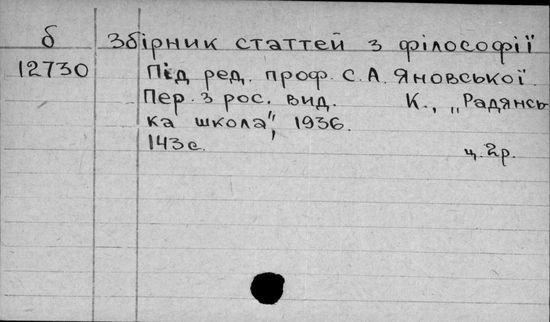 б Збірник статтей з філософії
12730 Під ред. проф. С. А. Яновської.
Пер. з рос. вид. К., „Радянсь-
ка школа", 1936.
143 с. ц. 2р.